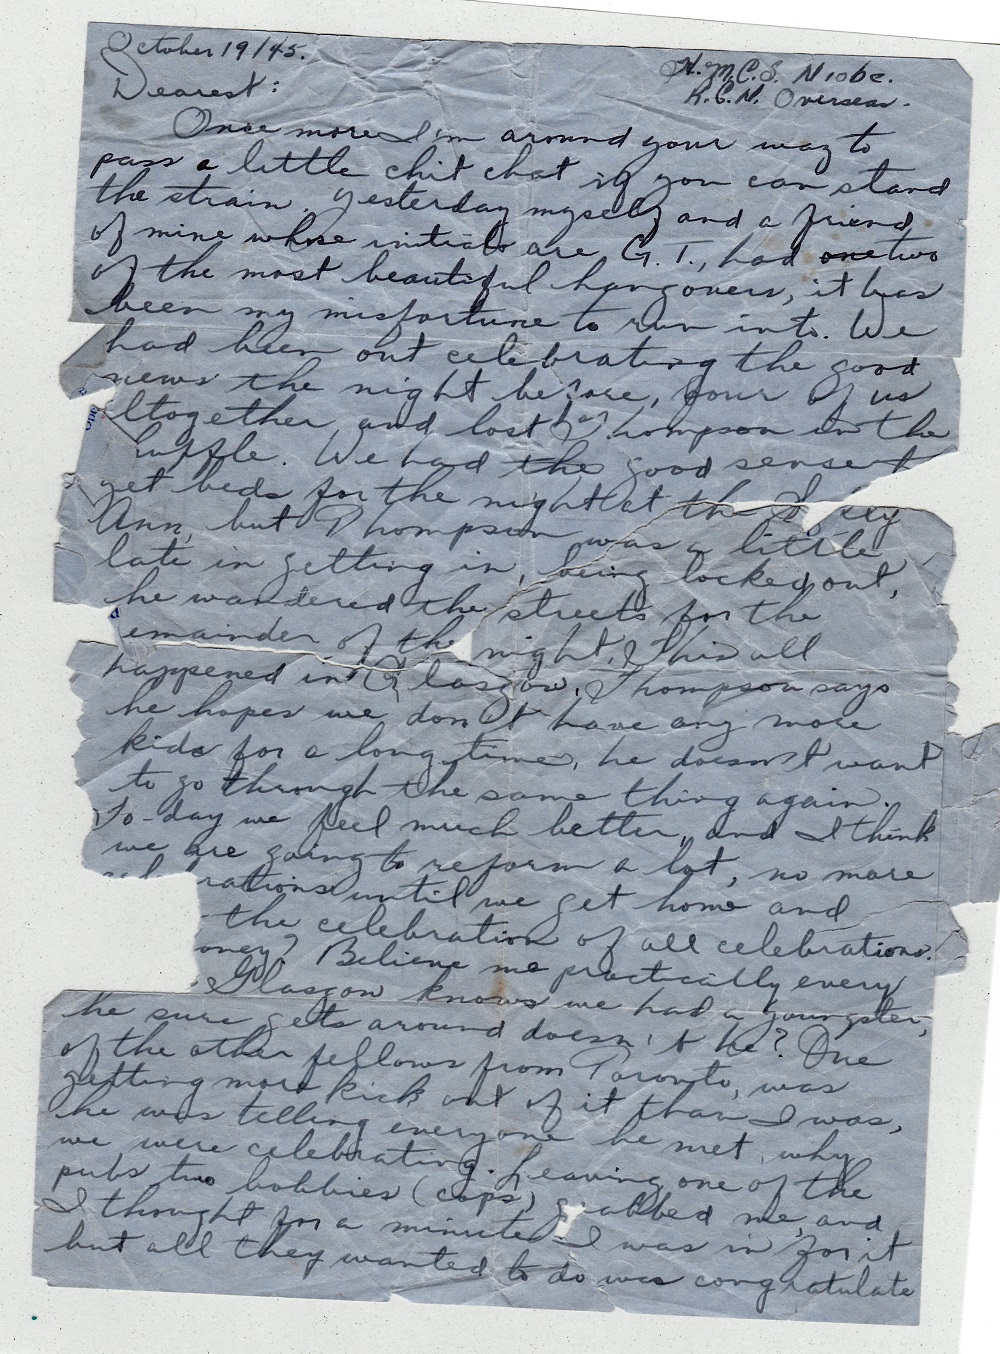 October 19/45.
H.M.C.S. Niobe.
R.C.N. Overseas.
Dearest:
Once more I'm around your way to
pass a little chit chat if you can stand
the strain. Yesterday myself and a friend
of mine whose initials are G.T., had one two
of the most beautiful hangovers, it has
been my misfortune to run into. We
had been out celebrating the good
news the night before, four of us
ltogether, and lost Thompson in the
huffle. We had the good sense t
get beds for the night at the
Ann, but Thompson was a little
late in getting in, being locked out,
he wandered the streets for the
emainder of the night. This all
happened in Glasgow. Thompson says
he hopes we don't have any more
kids for a long time, he doesn't want
to go through the same thing again.
To-day we feel much better, and I think
we are going to reform a lot, no more
rations until we get home and
the celebration of all celebrations.
oney? Believe me practically every
Glasgow knows we had a youngster,
he sure gets around doesn't he? One
of the other fellows from Toronto, was
getting more kick out of it than I was,
he was telling everyone he met, why
we were celebrating. Leaving one of the
pubs two bobbies (cops) grabbed me, and
I thought for a minute I was in for it
but all they wanted to do was congratulate